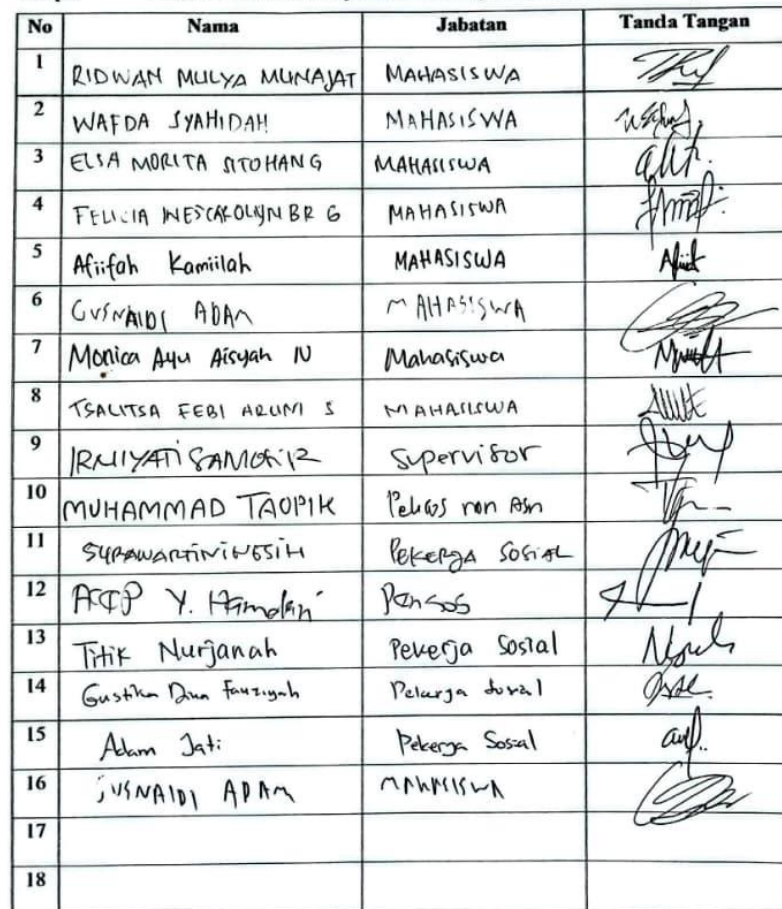 No Nama Jabatan Tanda Tangan
1 RIDWAN MULYA MUNAJAT MAHASISWA
2 WAFDA SYAHIDAH MAHASISWA
3 ELSA MORITA SITOHANG MAHASISWA
4 FELICIA WESCAROLYN BR G MAHASISWA
5 Afiifah Kamiilah MAHASISWA
6 GUSNAIDI ADAM MAHASISWA
7 Monica Ayu Aisyah N Mahasiswa
8 TSALITSA FEBI ARUMI S MAHASISWA
9 IRMIYATI SAMOSIR Supervisor
10 MUHAMMAD TAOPIK Peksos non Asn
11 PEKERJA SOSIAL
12 Y. Hamdani Pensos
13 Titik Nurjanah Pekerja Sosial
14 Gustika Dina Fauziyah Pekerja Sosial
15 Adam Jati Pekerja Sosial
16 GUSNAIDI ADAM MAHASISWA
17
18